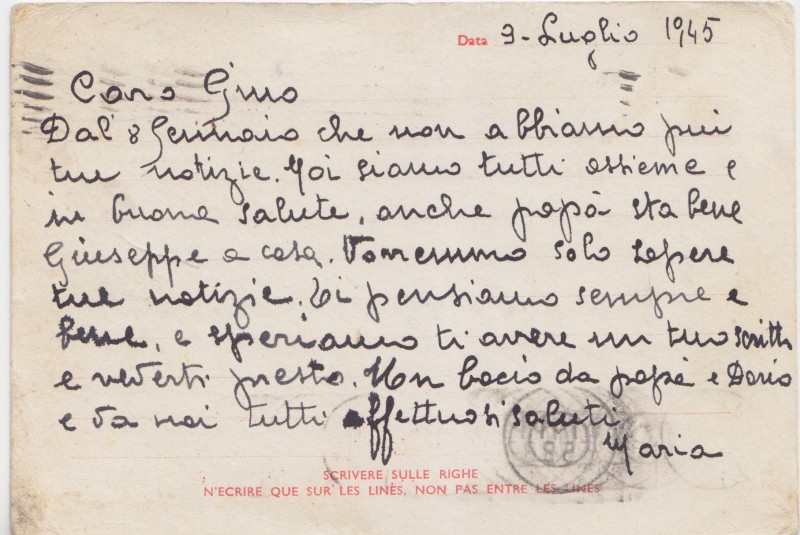 Data 9-Luglio 1945
Caro Gino
Dal' 8 Gennaio che non abbiamo più
tue notizie. Noi siamo tutti assieme e
in buona salute, anche papà sta bene
Giuseppe a casa. Vorressimo solo sapere
tue notizie. Ti pensiamo sempre e
bene, e speriamo ti avere un tuo scritto
e vederti presto. Un bacio da papà e Dario
e da noi tutti affettuosi saluti
Maria
SCRIVERE SULLE RIGHE
N'ECRIRE QUE SUR LES LINES, NON PAS ENTRE LES LINES